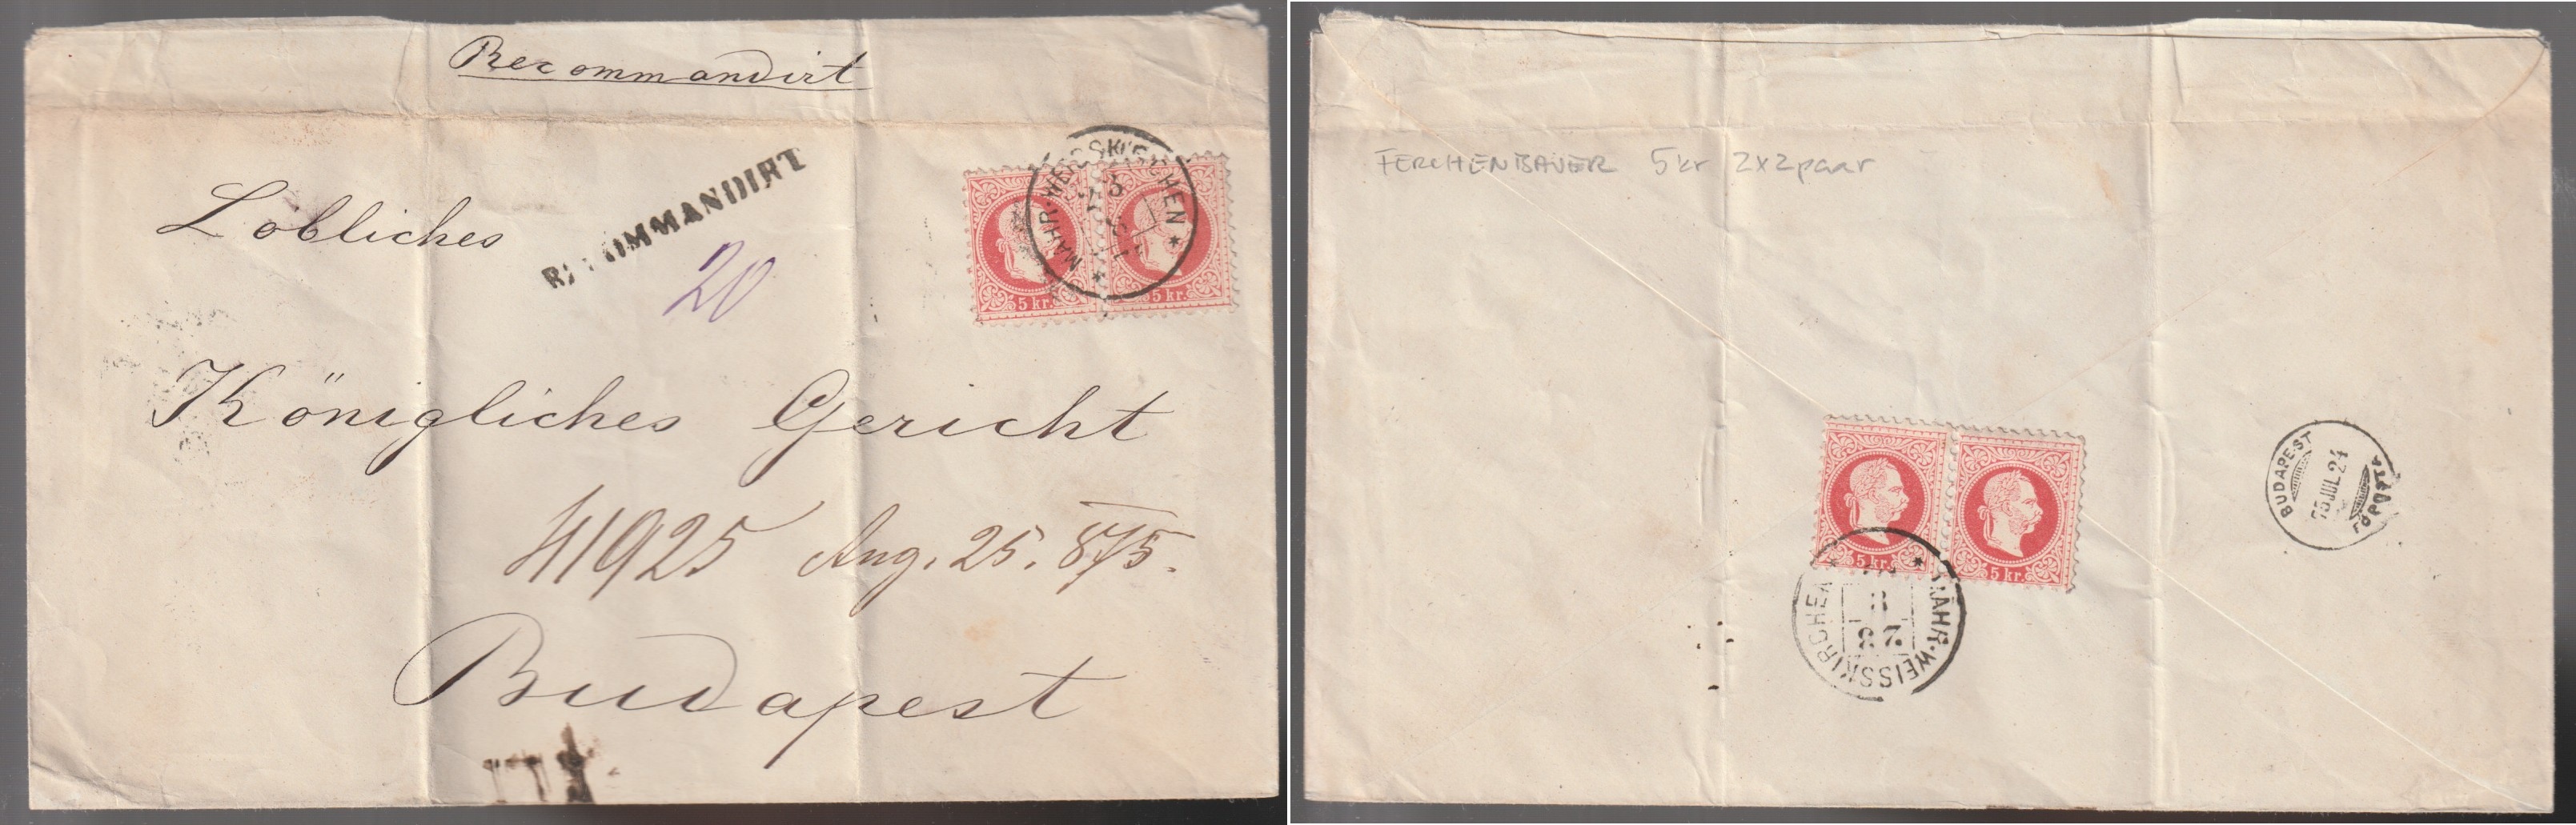 Recommandirt
RECOMMANDIRT
20
Lobliches
MÄHR·WEISSKIRCHEN
5 kr. 5 kr.
Königliches Gericht
41925 Aug. 25. 875.
Budapest
FERCHENBAUER 5kr 2x2paar
5 kr. 5 kr.
MÄHR·WEISSKIRCHEN
8
23 7.
BUDAPEST
75 JUL 24